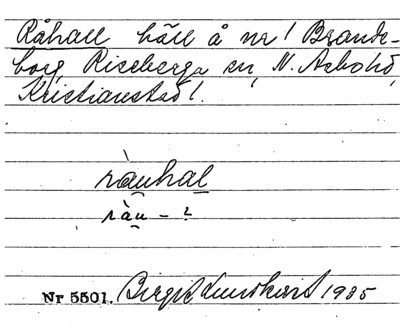 Råhall häll å nr 1 Brande-
borg Riseberga sn, N. Åsbo hd,
Kristianstad l.
ràu̯hal
ràu̯ - ?
Nr 5501. Birgit 1935